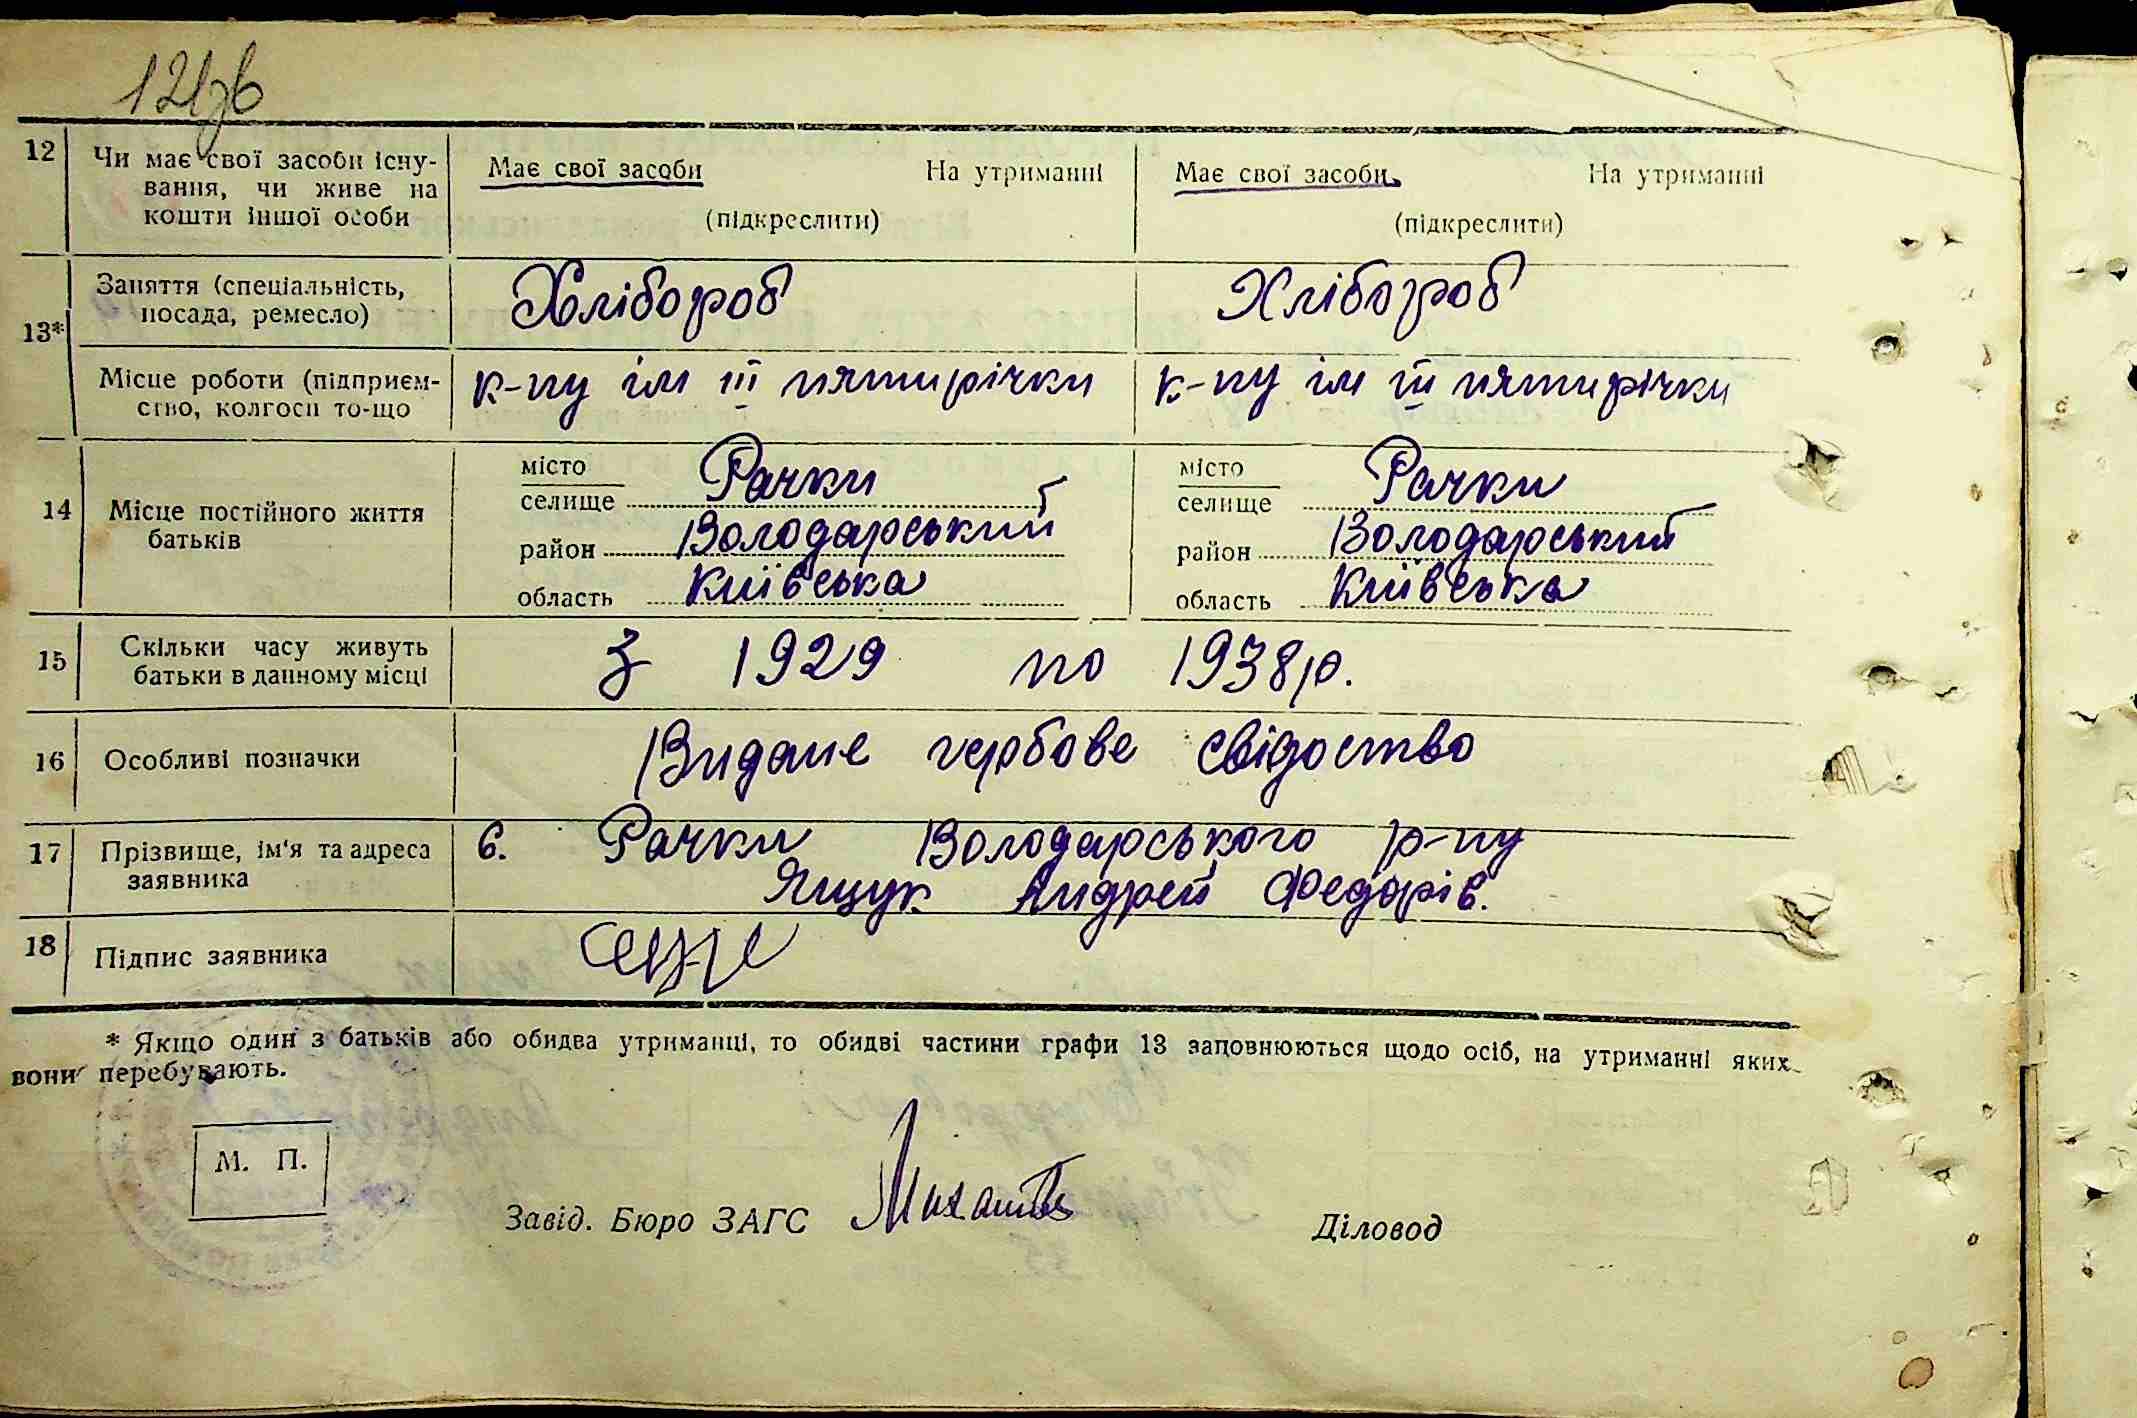 121зв
12 Чи має свої засоби існу-
вання, чи живе на
кошти іншої особи
Має свої засоби На утриманні
(підкреслити)
Має свої засоби На утриманні
(підкреслити)
13*
Заняття (спеціальність,
посада, ремесло)
Хлібороб
Хлібороб
Місце роботи (підприєм-
ство, колгосп то-що
к-пу ім III пятирічки
к-пу ім III пятирічки
14 Місце постійного життя
батьків
місто
селище Рачки
район Володарський
область Київська
місто
селище Рачки
район Володарський
область Київська
15 Скільки часу живуть
батьки в данному місці
З 1929 по 1938р.
16 Особливі позначки
Видане гербове свідоство
17 Прізвище, ім'я та адреса
заявника
с. Рачки Володарського р-ну
Ящук Андрей Федорів.
18 Підпис заявника
* Якщо один з батьків або обидва утриманці, то обидві частини графи 13 заповнюються щодо осіб, на утриманні яких
вони перебувають.
М. П.
Завід. Бюро ЗАГС
Діловод